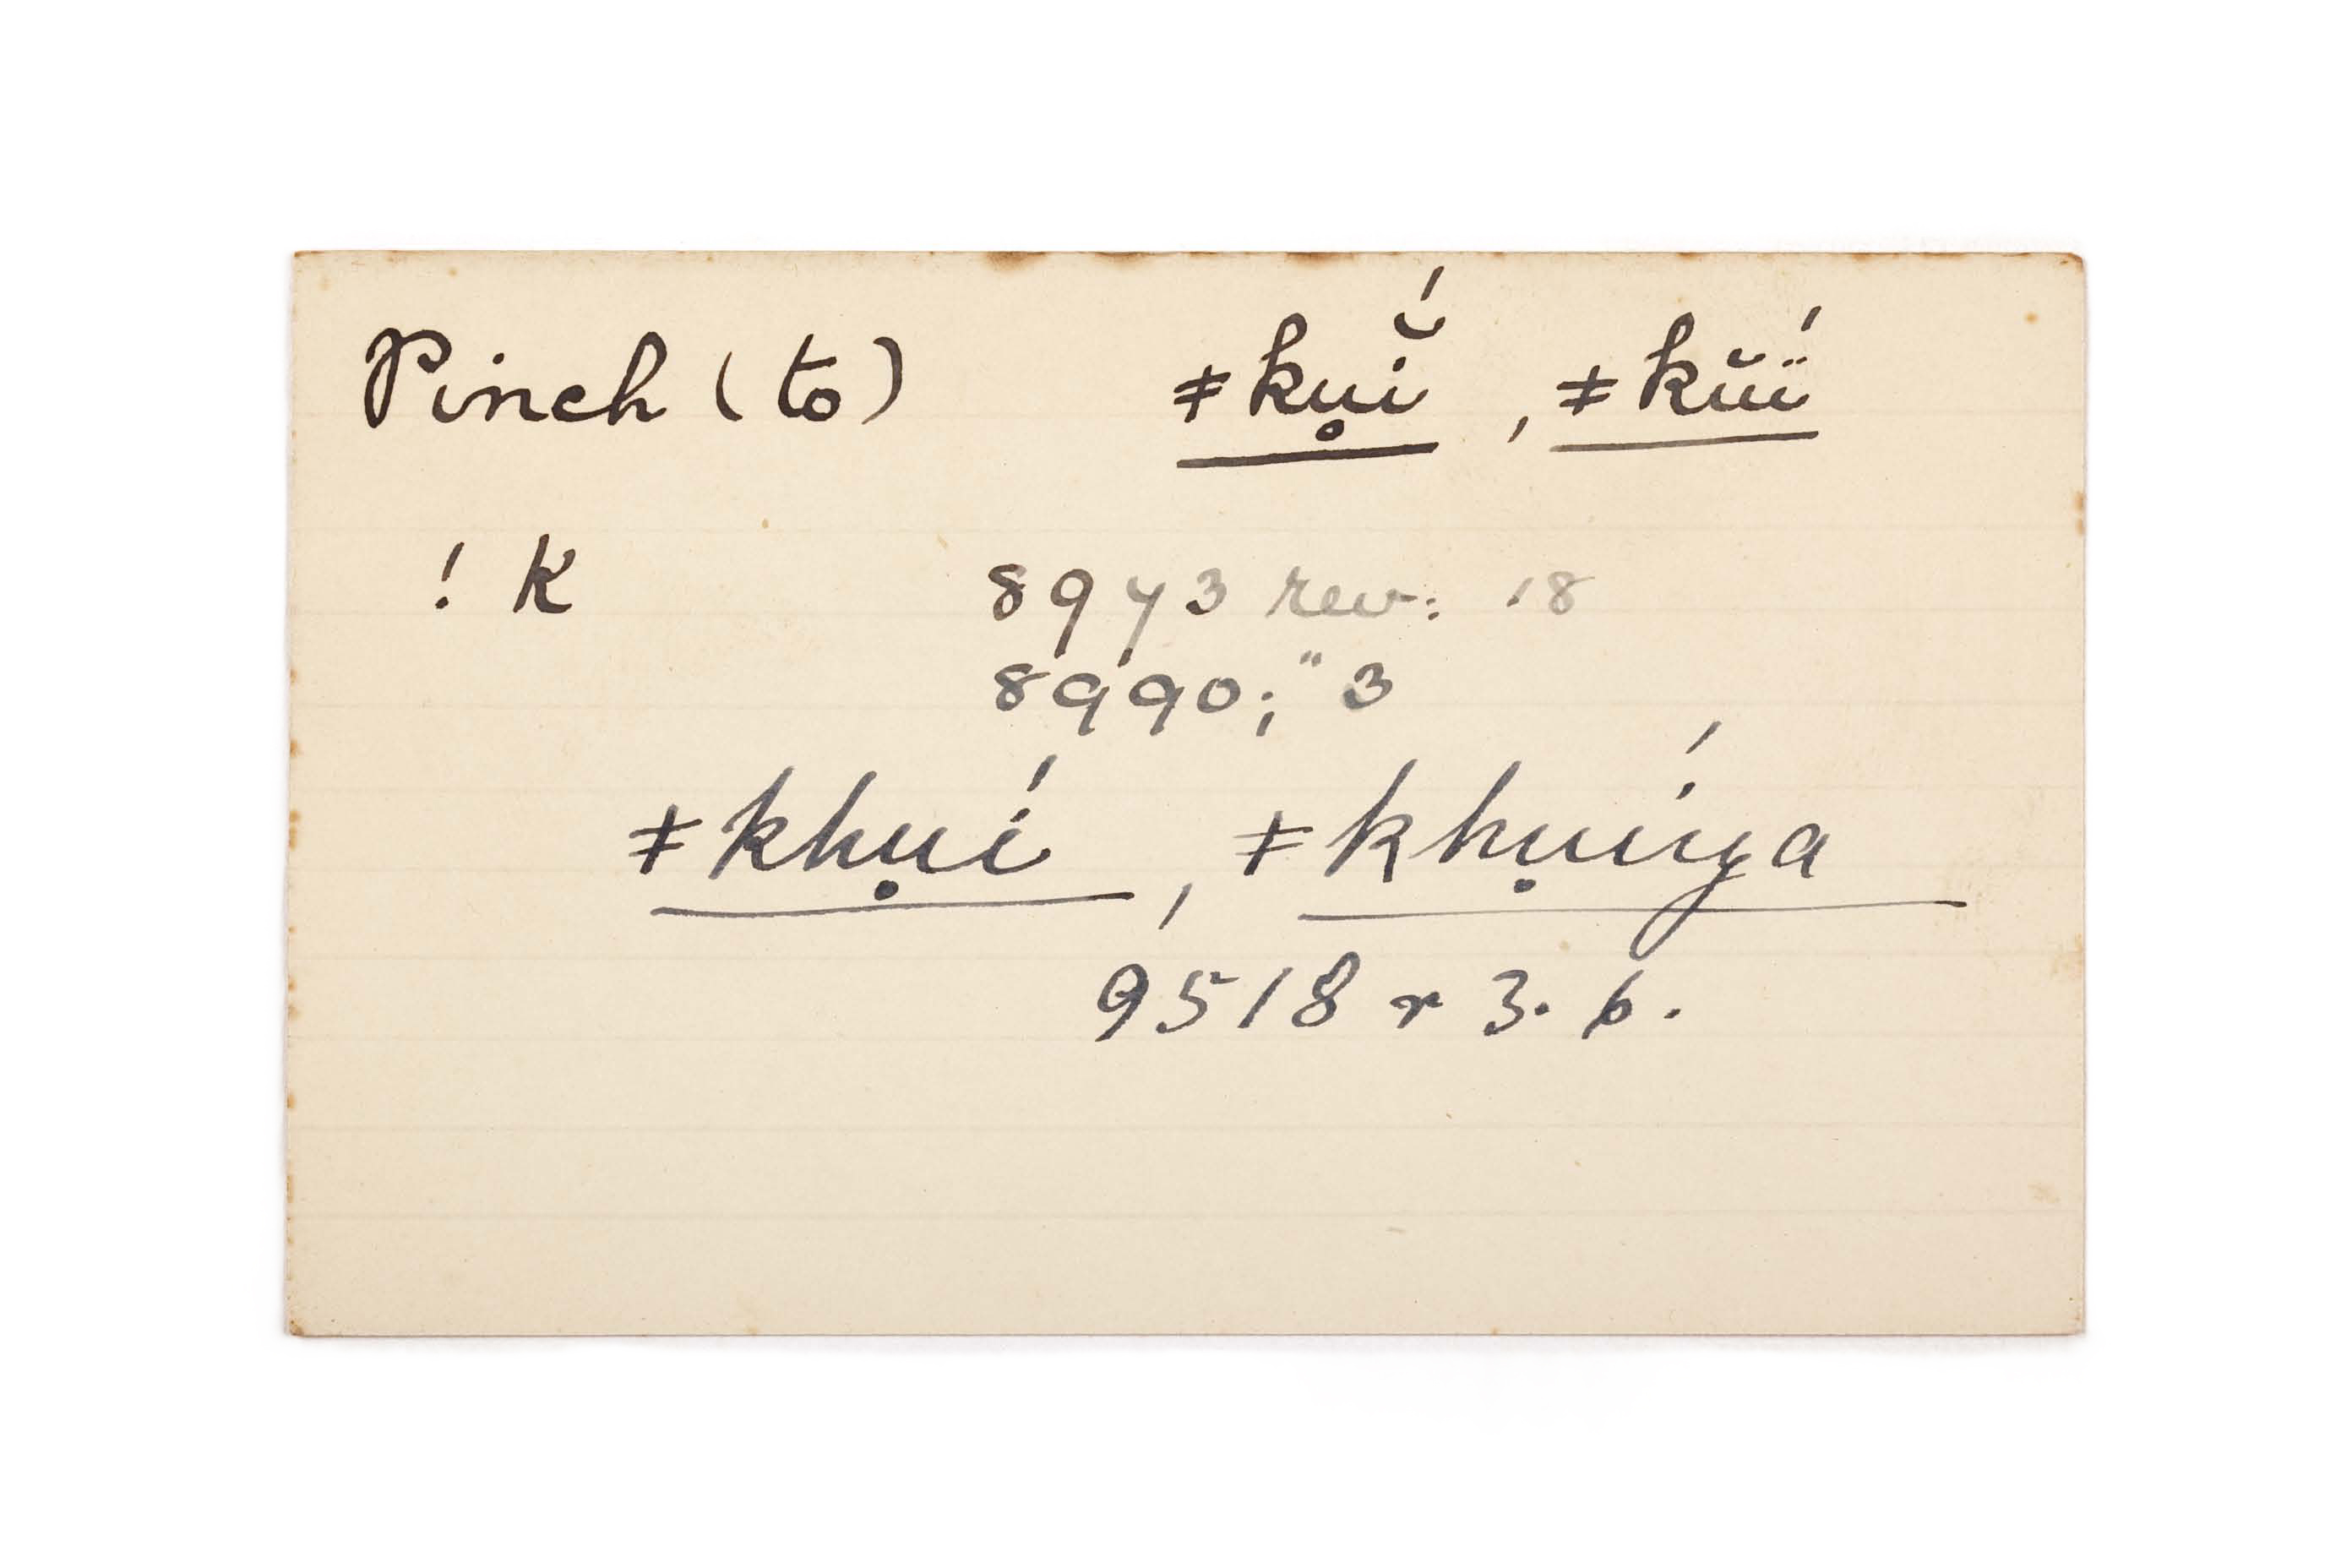 Pinch (to) ǂku̥ĭ́, ǂkŭḯ
! k
8973 rev: 18
8990; " 3
ǂkhụí, ǂkhụíya
9518 r 3. 6.